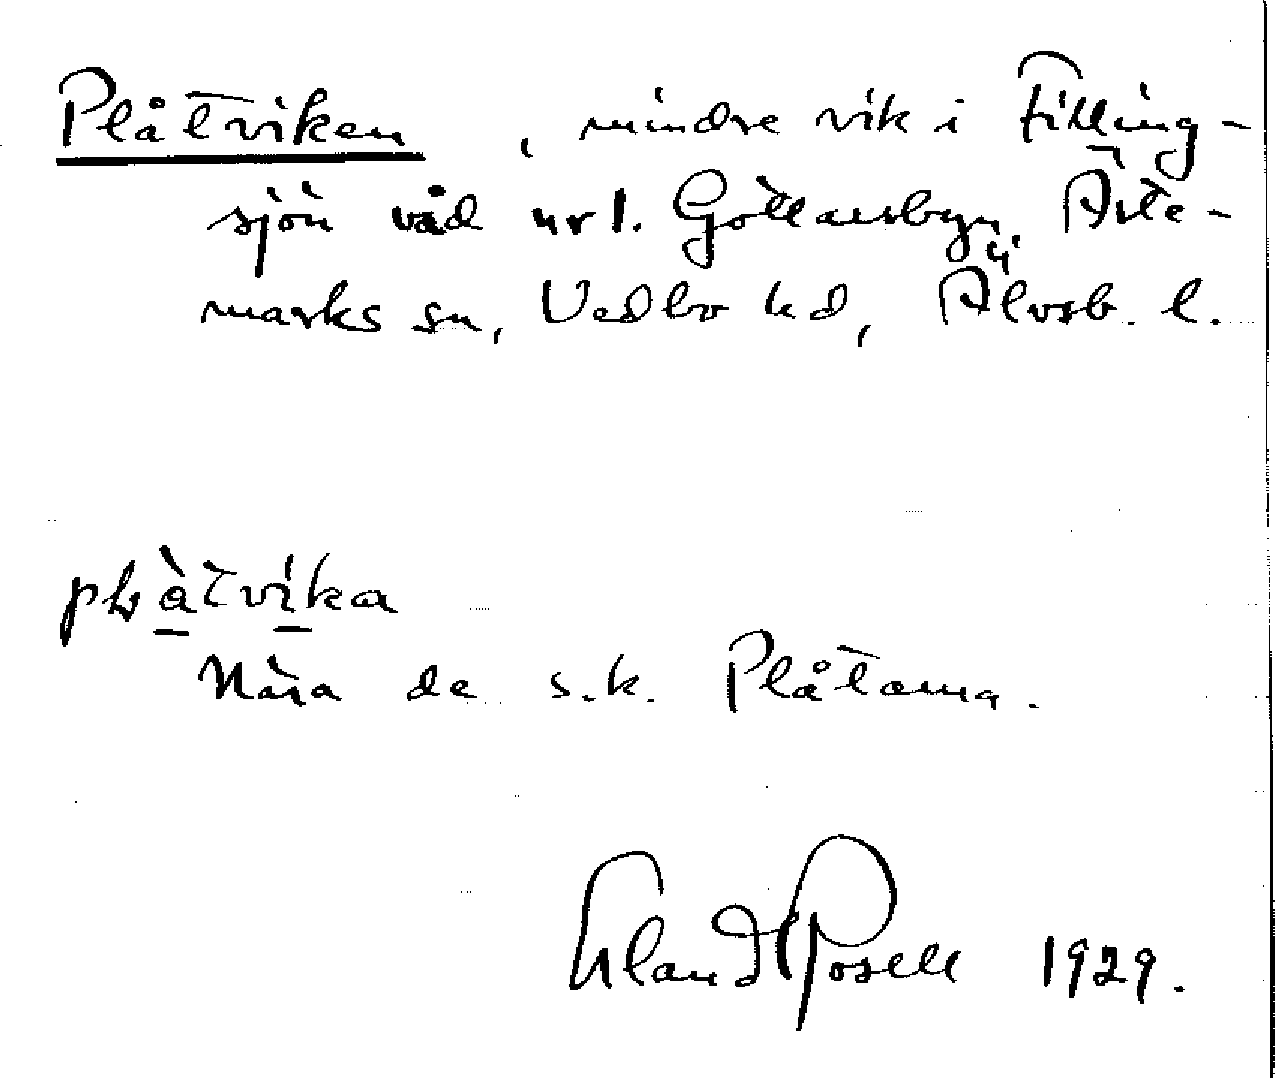 Plåtviken, mindre vik i Filling-
sjön vid nr 1. Göttarsbyn, Ärte-
marks sn, Vedbo hd, Älvsb. l.
plàtvíka
Nära de s.k. Plåtarna.
Erland Rosell 1929.